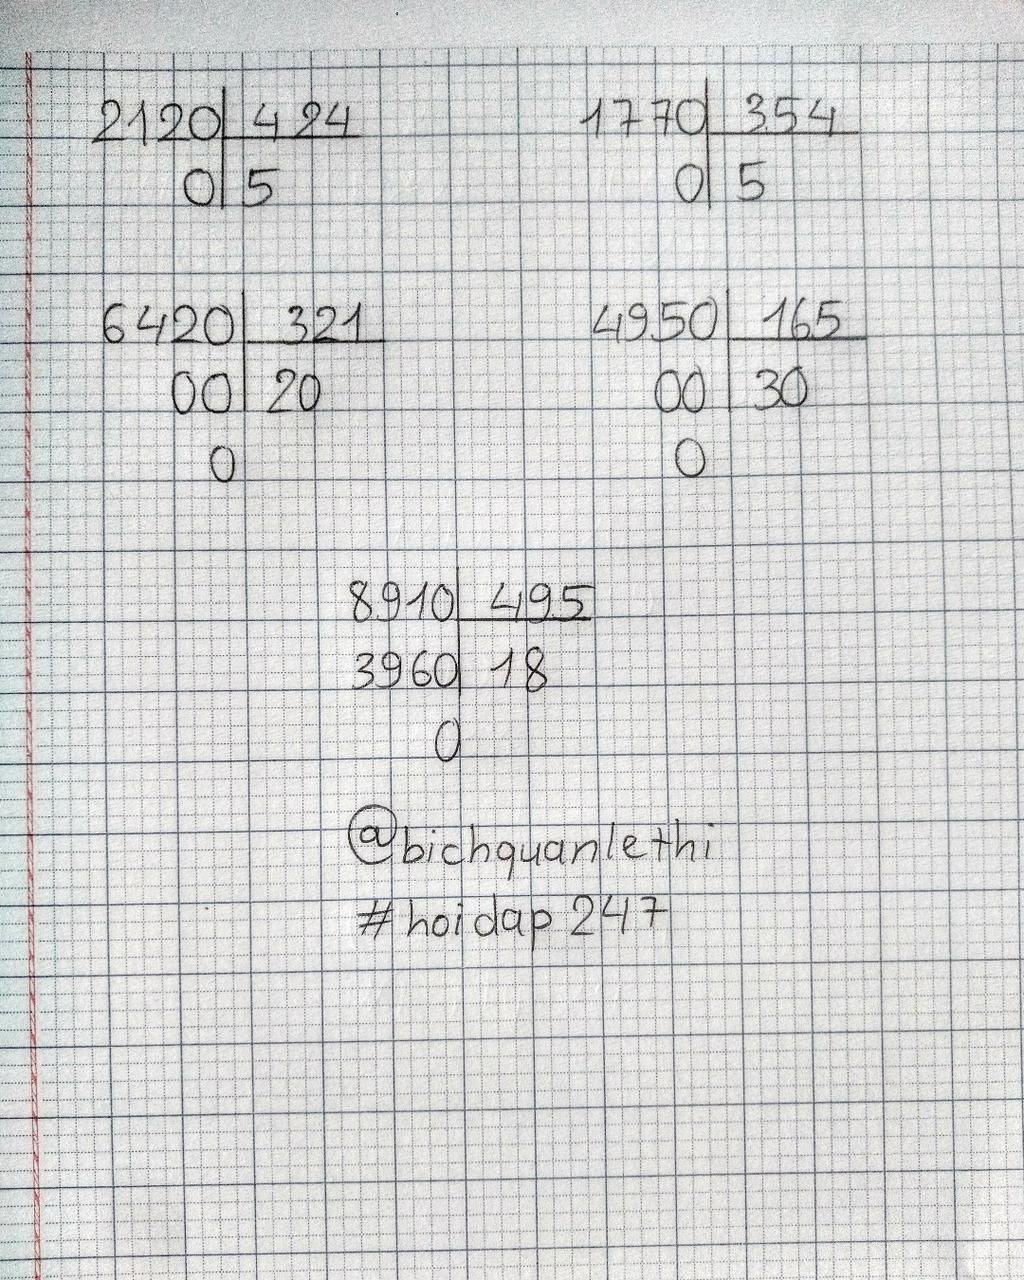 2120 424
0 5
1770 354
0 5
6420 321
00 20
0
4950 165
00 30
0
8910 495
3960 18
0
@bichquanlethi
#hoidap247